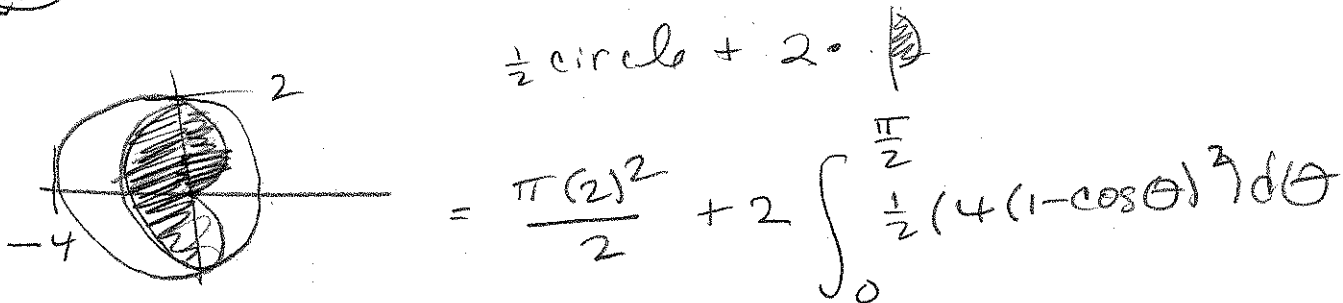 ½ circle + 2 •
2
-4
= π(2)²/2 + 2 ∫₀^{π/2} ½ (4(1-cosθ)²) dθ